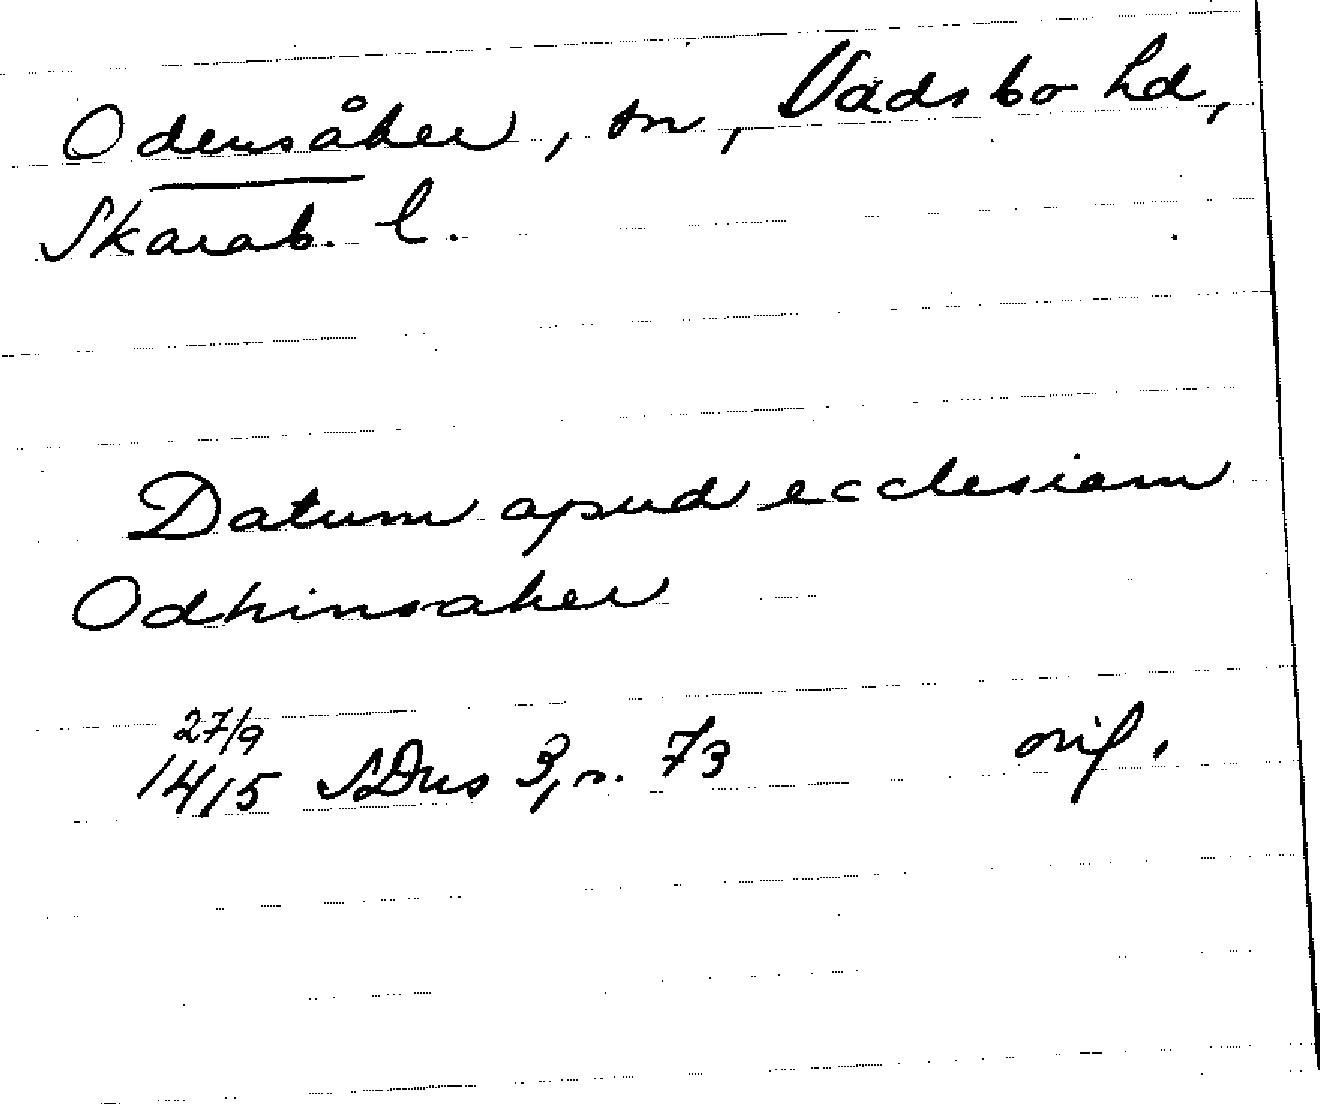 Odensåker, sn, Vadsbo hd,
Skarab. l.
Datum apud ecclesiam
Odhinsaker
27/9
1415 SDns 3, s. 73 orig.